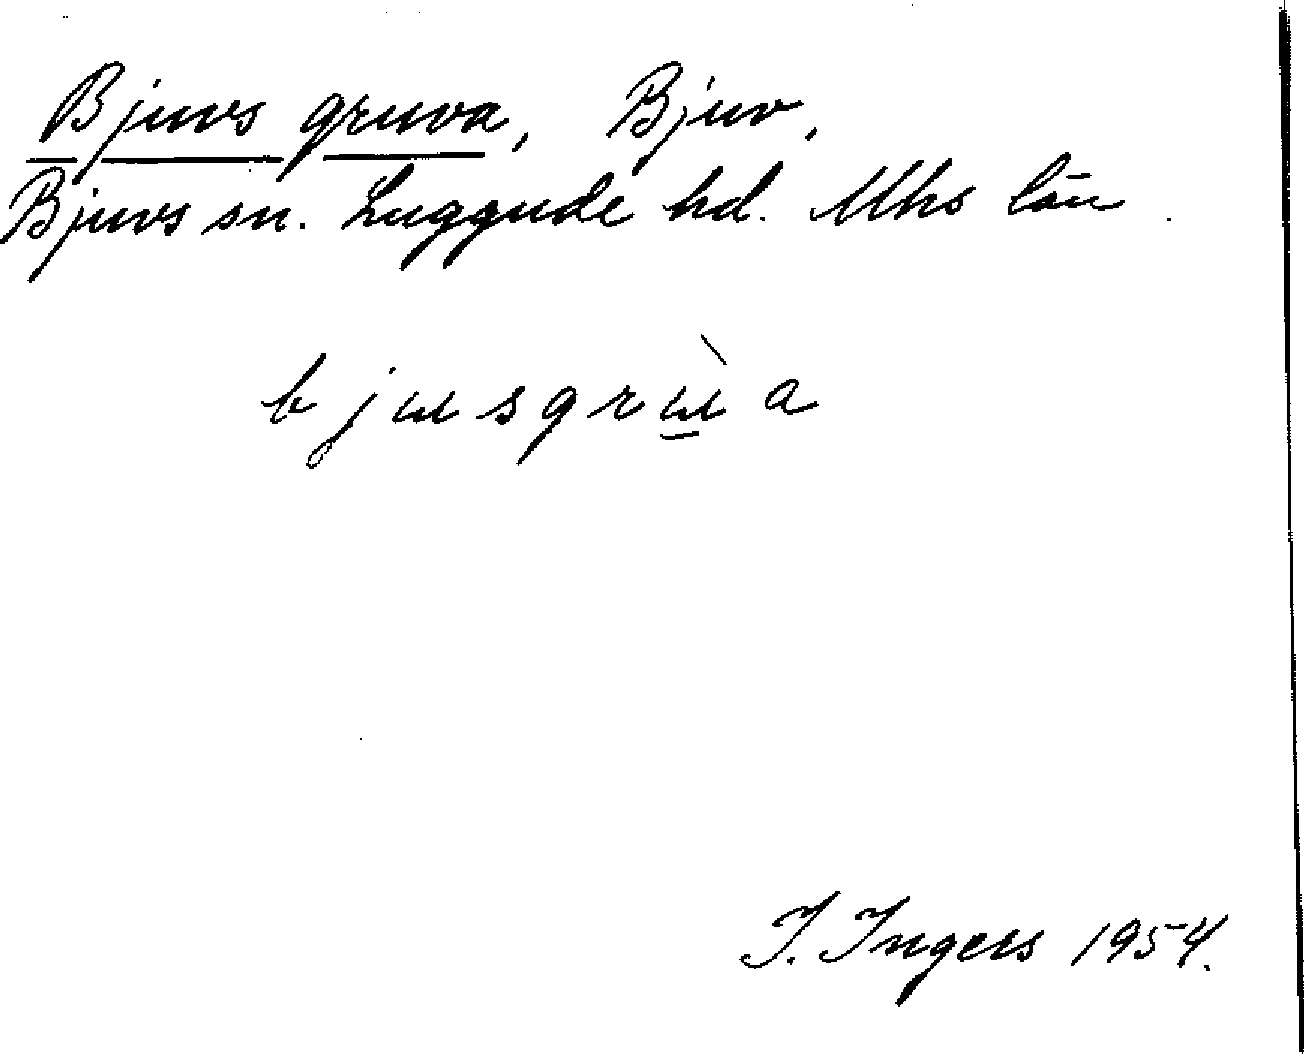 Bjuvs gruva, Bjuv,
Bjuvs sn. Luggude hd. Mhs län.
bjusgrùa
I. Ingers 1954.